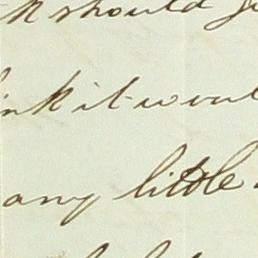 k should
ink it woul
any little